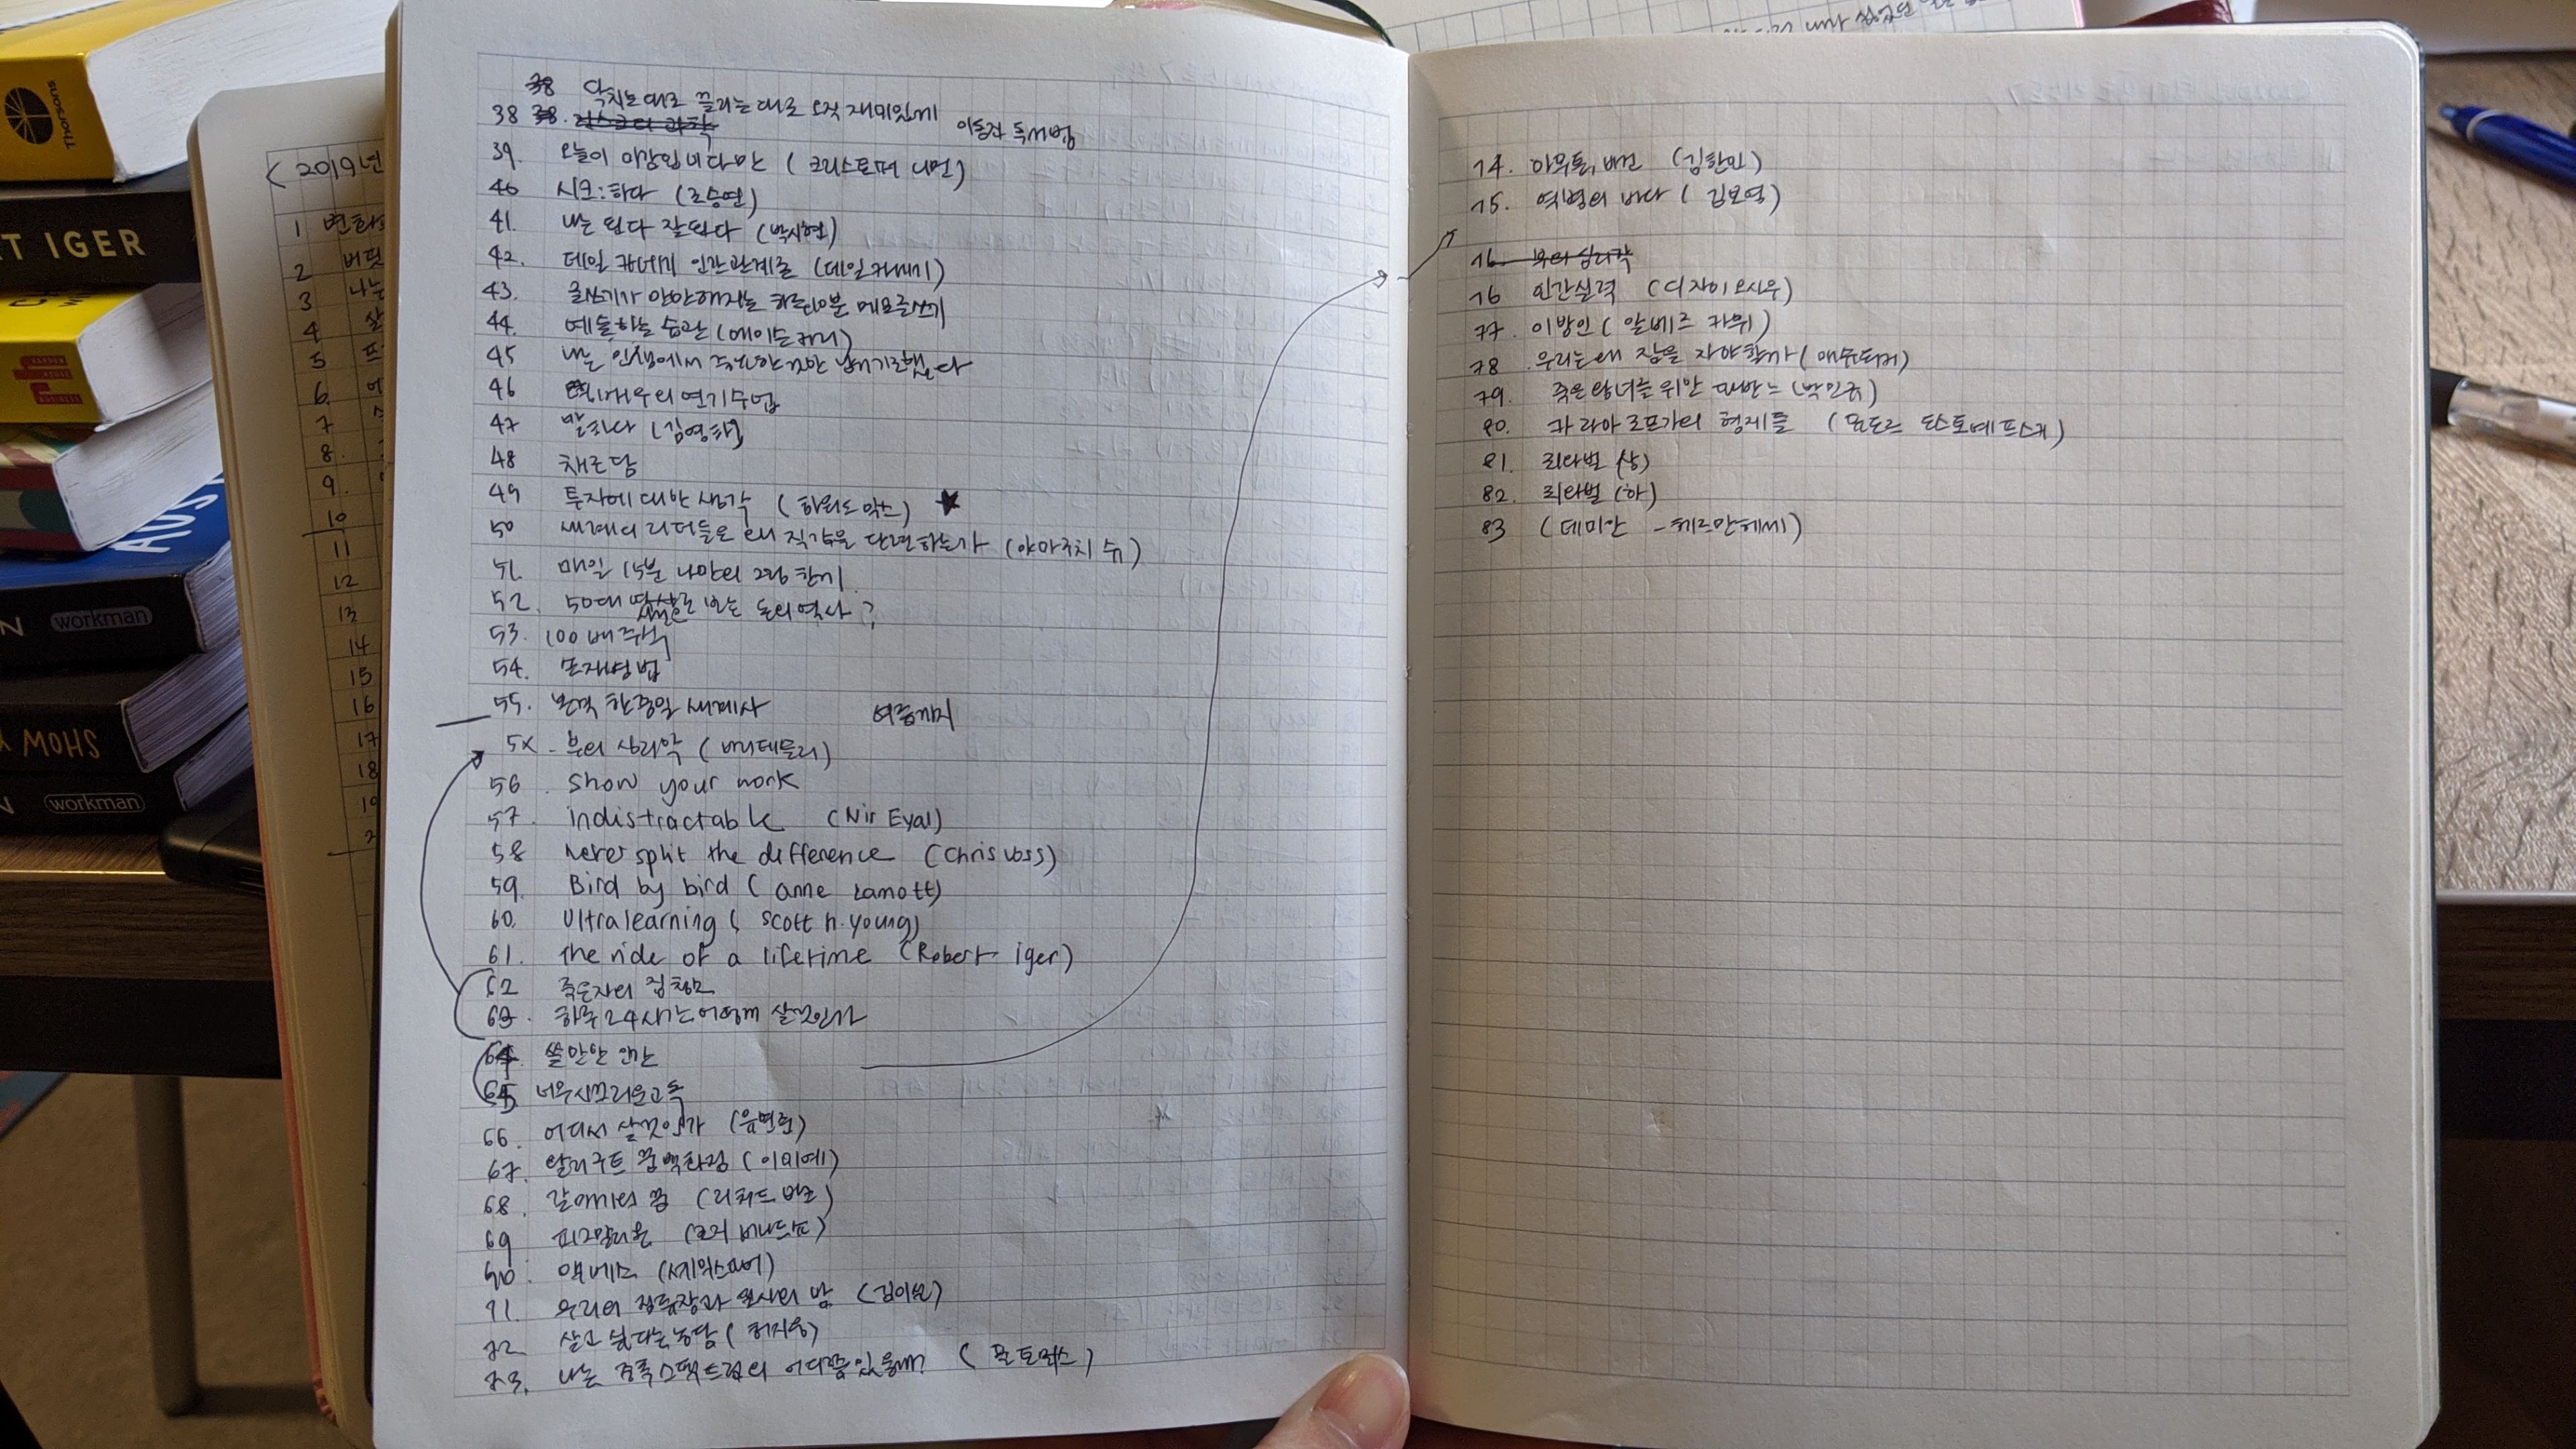 Thorsons
T IGER
workman
SHOW Y
workman
< 2019년
1 변화
2 버핏
3 나는
4
5
6
7
8.
9.
10
11
12
13
14
15
16
17
18
38 닥치는대로 끌리는대로 오직 재미있게 이동진 독서법
39. 오늘이 마감입니다만 ( 크리스토퍼 니먼)
40 시크:하다 (조승연)
41. 나는 된다 잘된다 (박시현)
42. 데일 카네기 인간관계론 (데일카네기)
43. 글쓰기가 만만해지는 하루10분 메모글쓰기
44. 예술하는 습관 (메이슨커리)
45 나는 인생에서 중요한것만 남기기로했다
46 배우의 연기수업
47 말하다 (김영하)
48 채근담
49 투자에 대한 생각 ( 하워드 막스) ★
50 세계의 리더들은 왜 직감을 단련하는가 (야마구치 슈)
51. 매일 15분 나만의 그림 한기
52. 50대 사건으로 보는 돈의역사 ?
53. 100배 주식
54.
55. 본격 한중일 세계사
5x - 부의 심리학 ( 바리테를러)
56 . Show your work
57. indistractable (Nir Eyal)
58 Never split the difference (Chris Voss)
59. Bird by bird ( anne Lamott)
60. Ultralearning ( Scott h. young)
61. the ride of a lifetime (Robert iger)
62 죽은자의 집청소
63. 하루 24시간 어떻게 살것인가
64. 쓸만한 인간
65 너무시끄러운고독
66. 어디서 살것인가 (유현준)
67. 달러구트 꿈백화점 ( 이미예)
68. 갈매기의 꿈 (리처드 바크)
69 피그말리온 (조지 버나드쇼)
70. 맥베스 (셰익스피어)
71. 우리의 정류장과 필사의 밤 (김이설)
72. 살고 싶다는농담 ( 허지웅)
73. 나는 중독스펙트럼의 어디쯤있을까? ( 폴 토머스 )
74. 아무튼, 비건 (김한민)
75. 역병의 바다 ( 김보영)
16. 부의 심리학
76 인간실격 (다자이오사무)
77. 이방인 ( 알베르 카뮈)
78. 우리는왜 잠을 자야할까 (매슈워커)
79. 죽은왕녀를 위한 파반느 (박민규)
80. 카라마조프가의 형제들 (표도르 도스토예프스키)
81. 리타벌 (상)
82. 리타벌 (하)
83 (데미안 - 헤르만헤세)